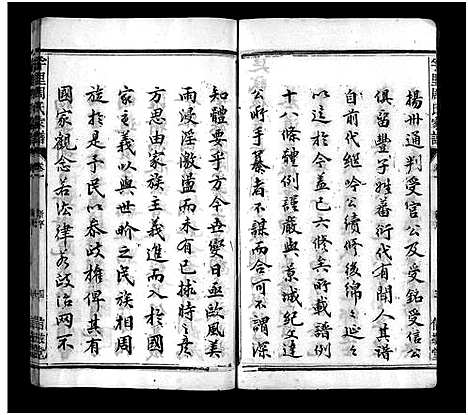 楊州通判受官公及受銘受信公
俱留豐子姓蕃衍代有聞人其譜
自前代繼吟公續修後綿々延々
以迄於今蓋已六修矣所載譜例
十八條體例謹嚴與景城紀文達
公所手纂者不謀而合可不謂深
知體要乎方今世變日亟歐風美
雨浸淫激盪而來已據時之彥
方思由家族主義進而入於國
家主義以與世畛之民族相周
旋於是予民以參政權俾其有
國家觀念若法律若政治罔不